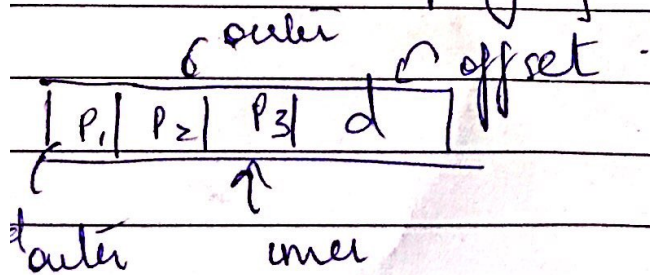 outer
offset
P1 P2 P3 d
outer inner